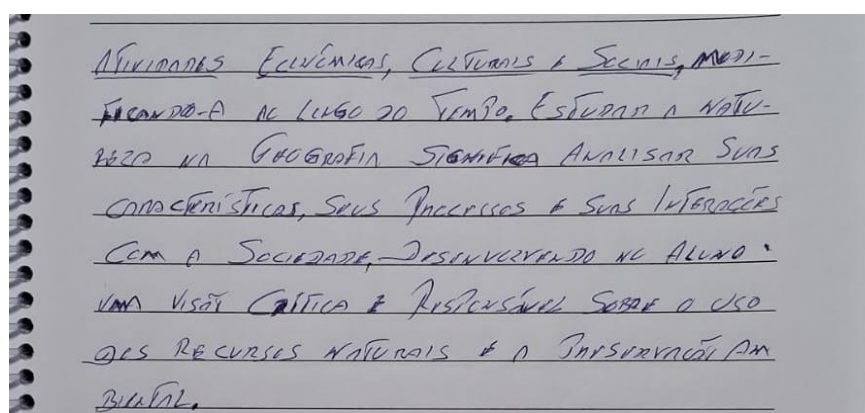 Atividades Econômicas, Culturais e Sociais, modi-
ficando-a ao longo do Tempo. Estudar a natu-
reza na Geografia Significa Analisar Suas
características, Seus Processos e Suas Interações
Com a Sociedade, Desenvolvendo no Aluno
uma Visão Crítica e Responsável Sobre o uso
dos Recursos Naturais e a Preservação Am
biental.